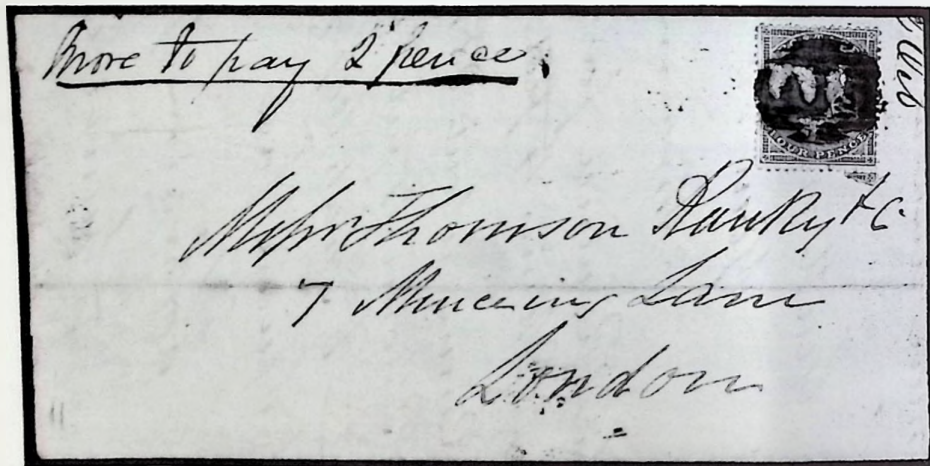 More to pay 2 pence
FOUR PENCE
Messrs Thomson Hanky & Co
7 Mincing Lane
London